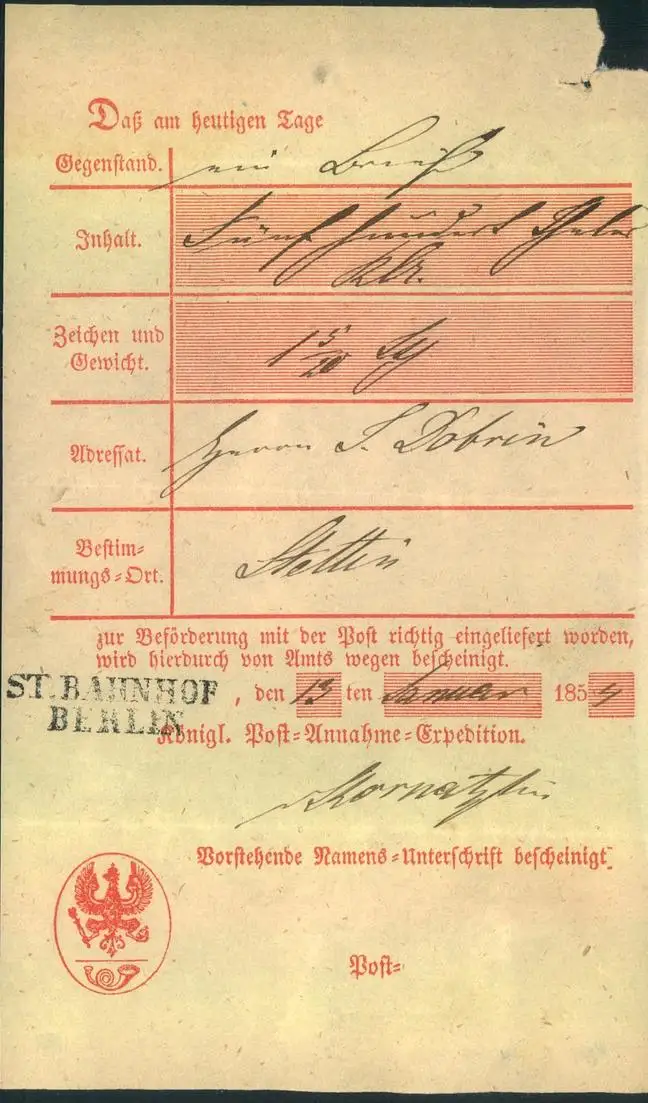 Daß am heutigen Tage
Gegenstand. ein Brief
Inhalt. Fünf hundert Thaler
Zeichen und
Gewicht. 1 5/20
Adressat. Herrn S. Dobrin
Bestim-
mungs-Ort. Stettin
zur Beförderung mit der Post richtig eingeliefert worden,
wird hierdurch von Amts wegen bescheinigt.
ST. BAHNHOF
BERLIN
, den 13 ten Januar 1854
Königl. Post-Annahme-Expedition.
Vorstehende Namens-Unterschrift bescheinigt
Post-